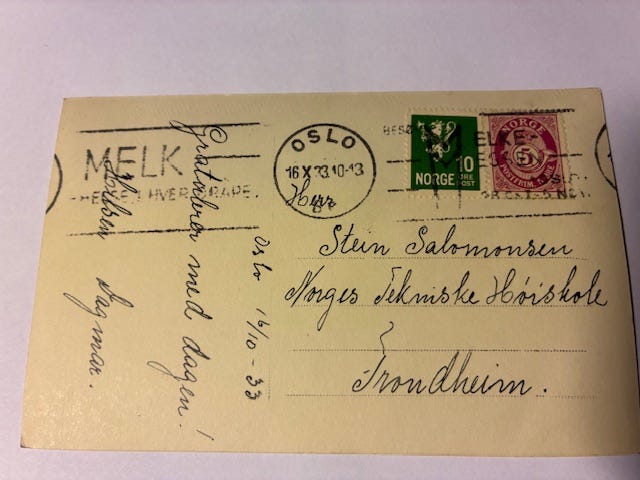 Gratulerer med dagen!
Hilsen Dagmar.
Oslo 16/10-33
MELK
HVER
OSLO
16 X 33.10-13
BESØ
MELKE-
NORGE
10
ØRE
POST
NORGE
5
POSTFRIM. 5 ØRE
Herr
Stein Salomonsen
Norges Tekniske Høiskole
Trondheim.